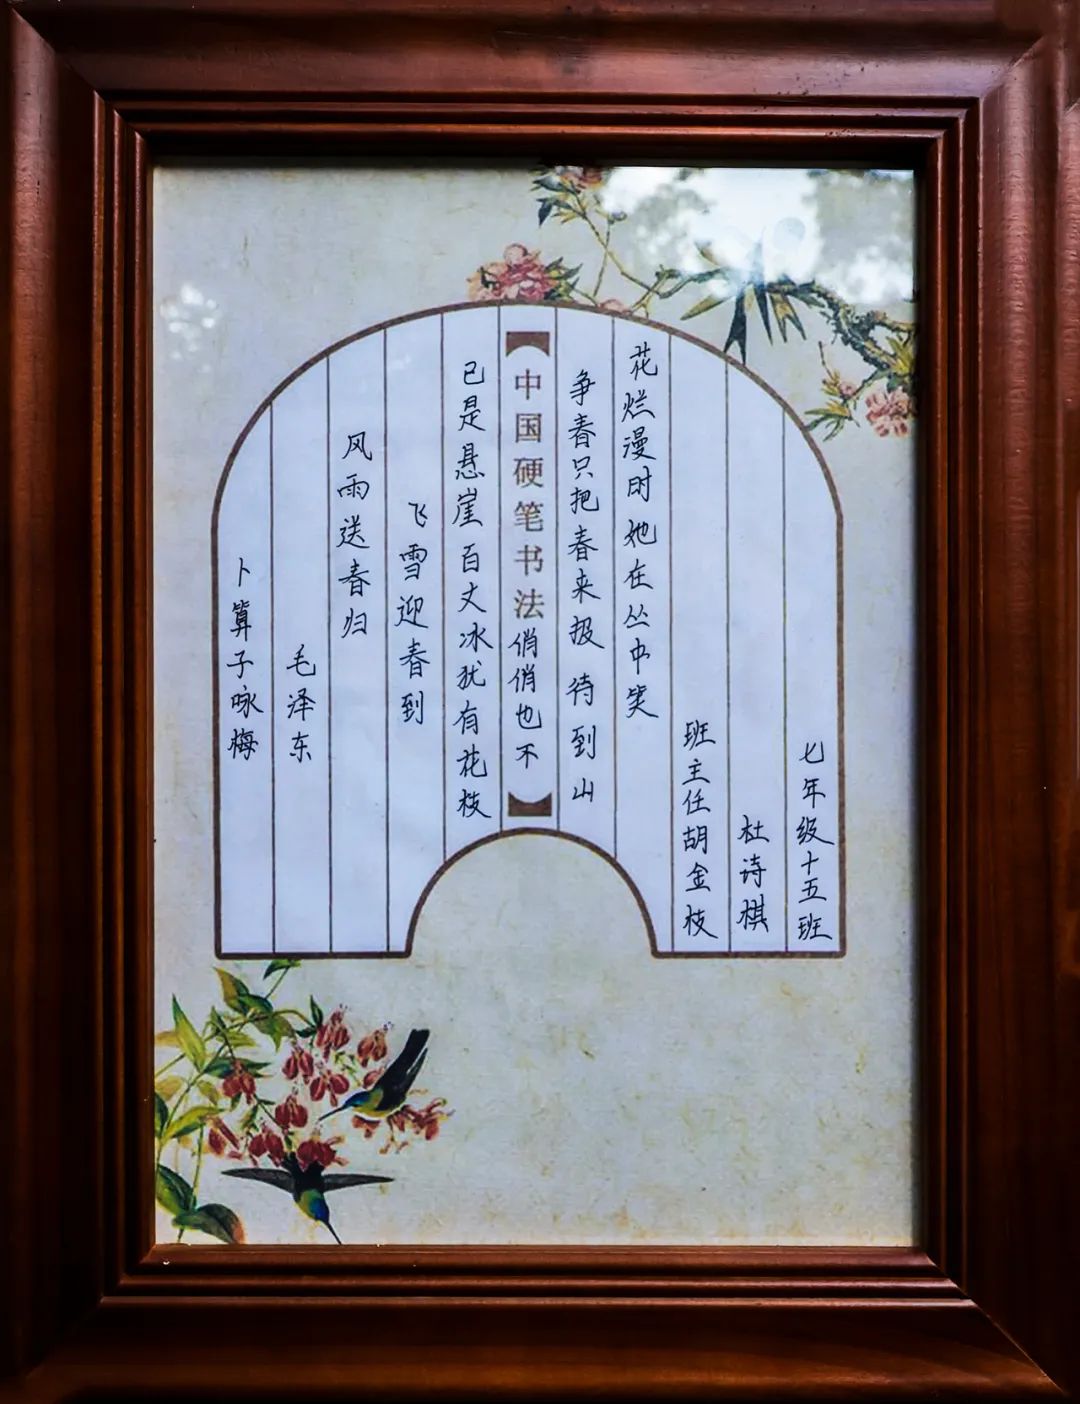 卜算子咏梅
毛泽东
风雨送春归
飞雪迎春到
已是悬崖百丈冰犹有花枝
中国硬笔书法
俏俏也不
争春只把春来报 待到山
花烂漫时她在丛中笑
班主任胡金枝
杜诗棋
七年级十五班